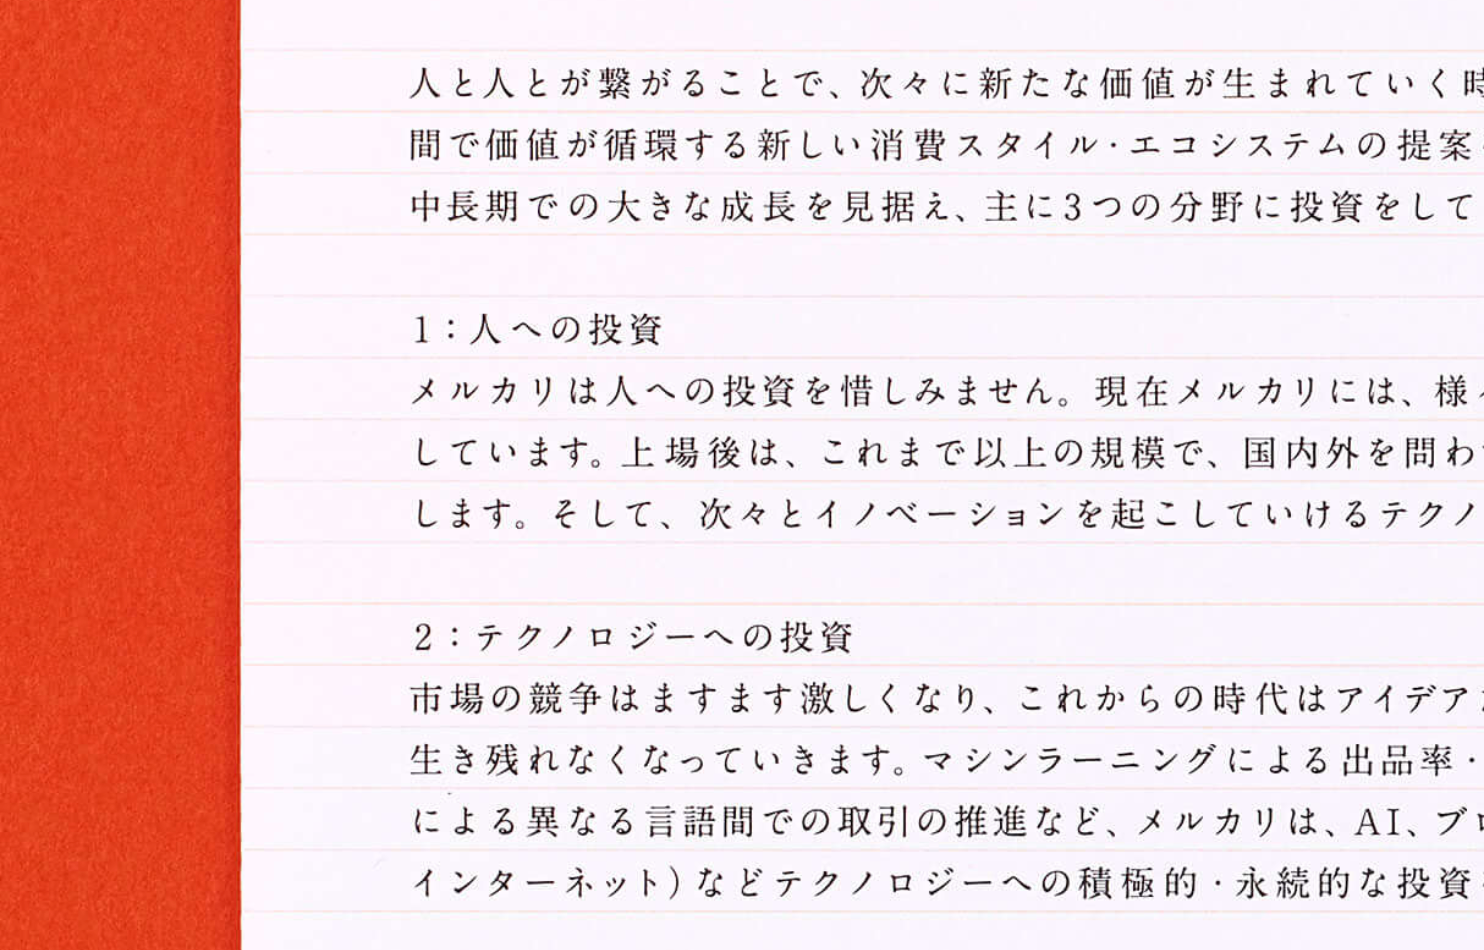 人と人とが繋がることで、次々に新たな価値が生まれていく時
間で価値が循環する新しい消費スタイル・エコシステムの提案
中長期での大きな成長を見据え、主に3つの分野に投資をして
1：人への投資
メルカリは人への投資を惜しみません。現在メルカリには、様
しています。上場後は、これまで以上の規模で、国内外を問わ
します。そして、次々とイノベーションを起こしていけるテクノ
2：テクノロジーへの投資
市場の競争はますます激しくなり、これからの時代はアイデア
生き残れなくなっていきます。マシンラーニングによる出品率・
による異なる言語間での取引の推進など、メルカリは、AI、ブロ
インターネット）などテクノロジーへの積極的・永続的な投資